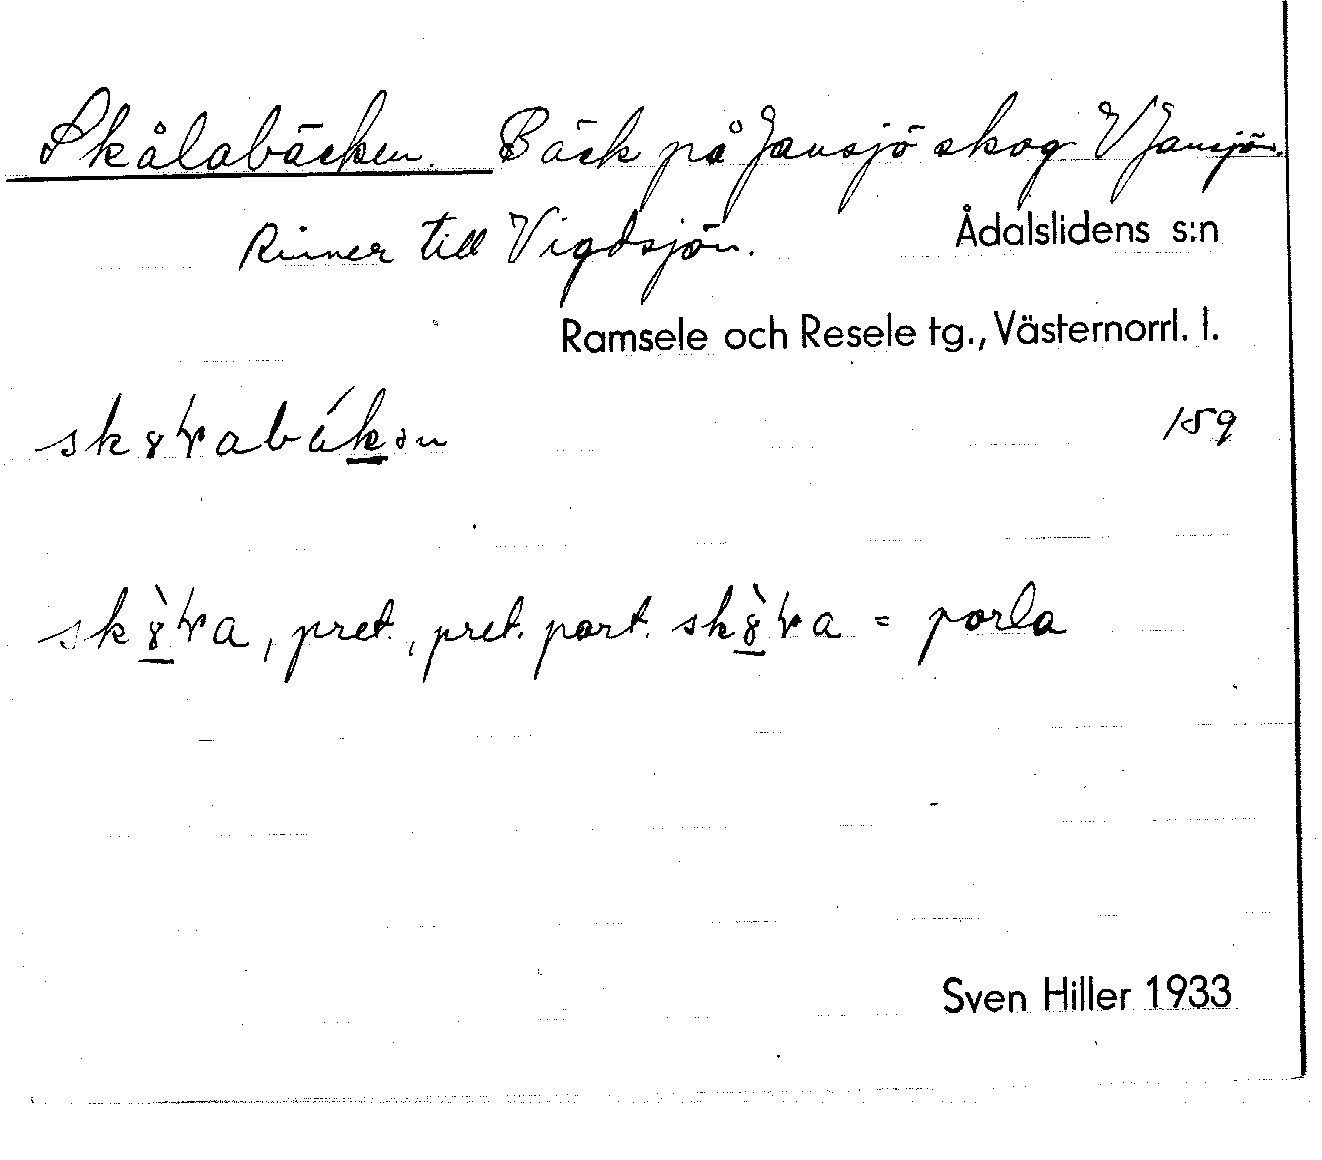 Skålabäcken. Bäck på Jansjö skog V Jansjön.
Rinner till Vigdsjön.
Ådalslidens s:n
Ramsele och Resele tg., Västernorrl. l.
159
, pret., pret. part. = porla
Sven Hiller 1933